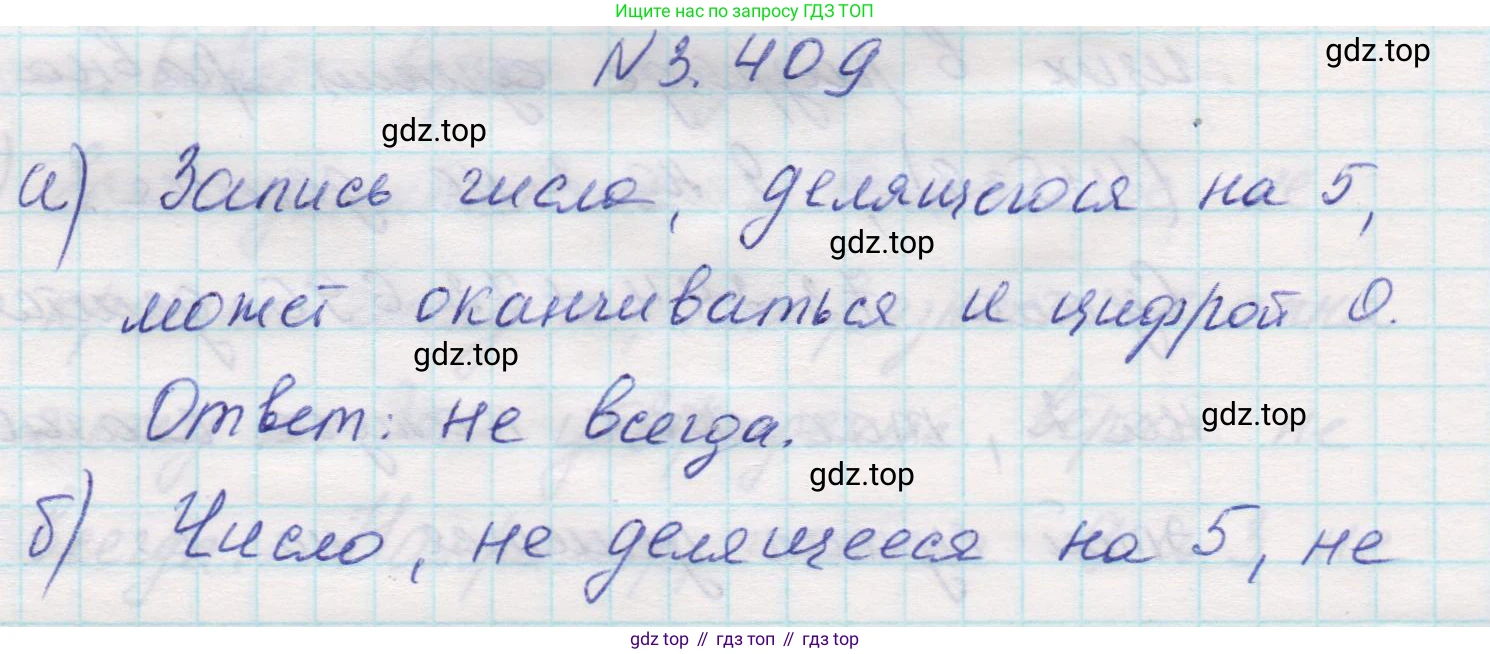 Ищите нас по запросу ГДЗ ТОП
N 3. 409
gdz.top
gdz.top
а) Запись числа, делящегося на 5,
gdz.top
может оканчиваться и цифрой 0.
gdz.top
Ответ: не всегда.
gdz.top
gdz.top
б) Число, не делящееся на 5, не
gdz top // гдз топ // гдз top